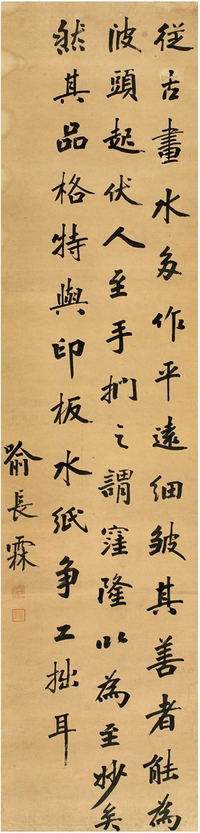 從古畫水多作平遠細皺其善者能為
波頭起伏人至手捫之謂窪隆以為至妙矣
然其品格特與印板水紙争工拙耳
喻長霖